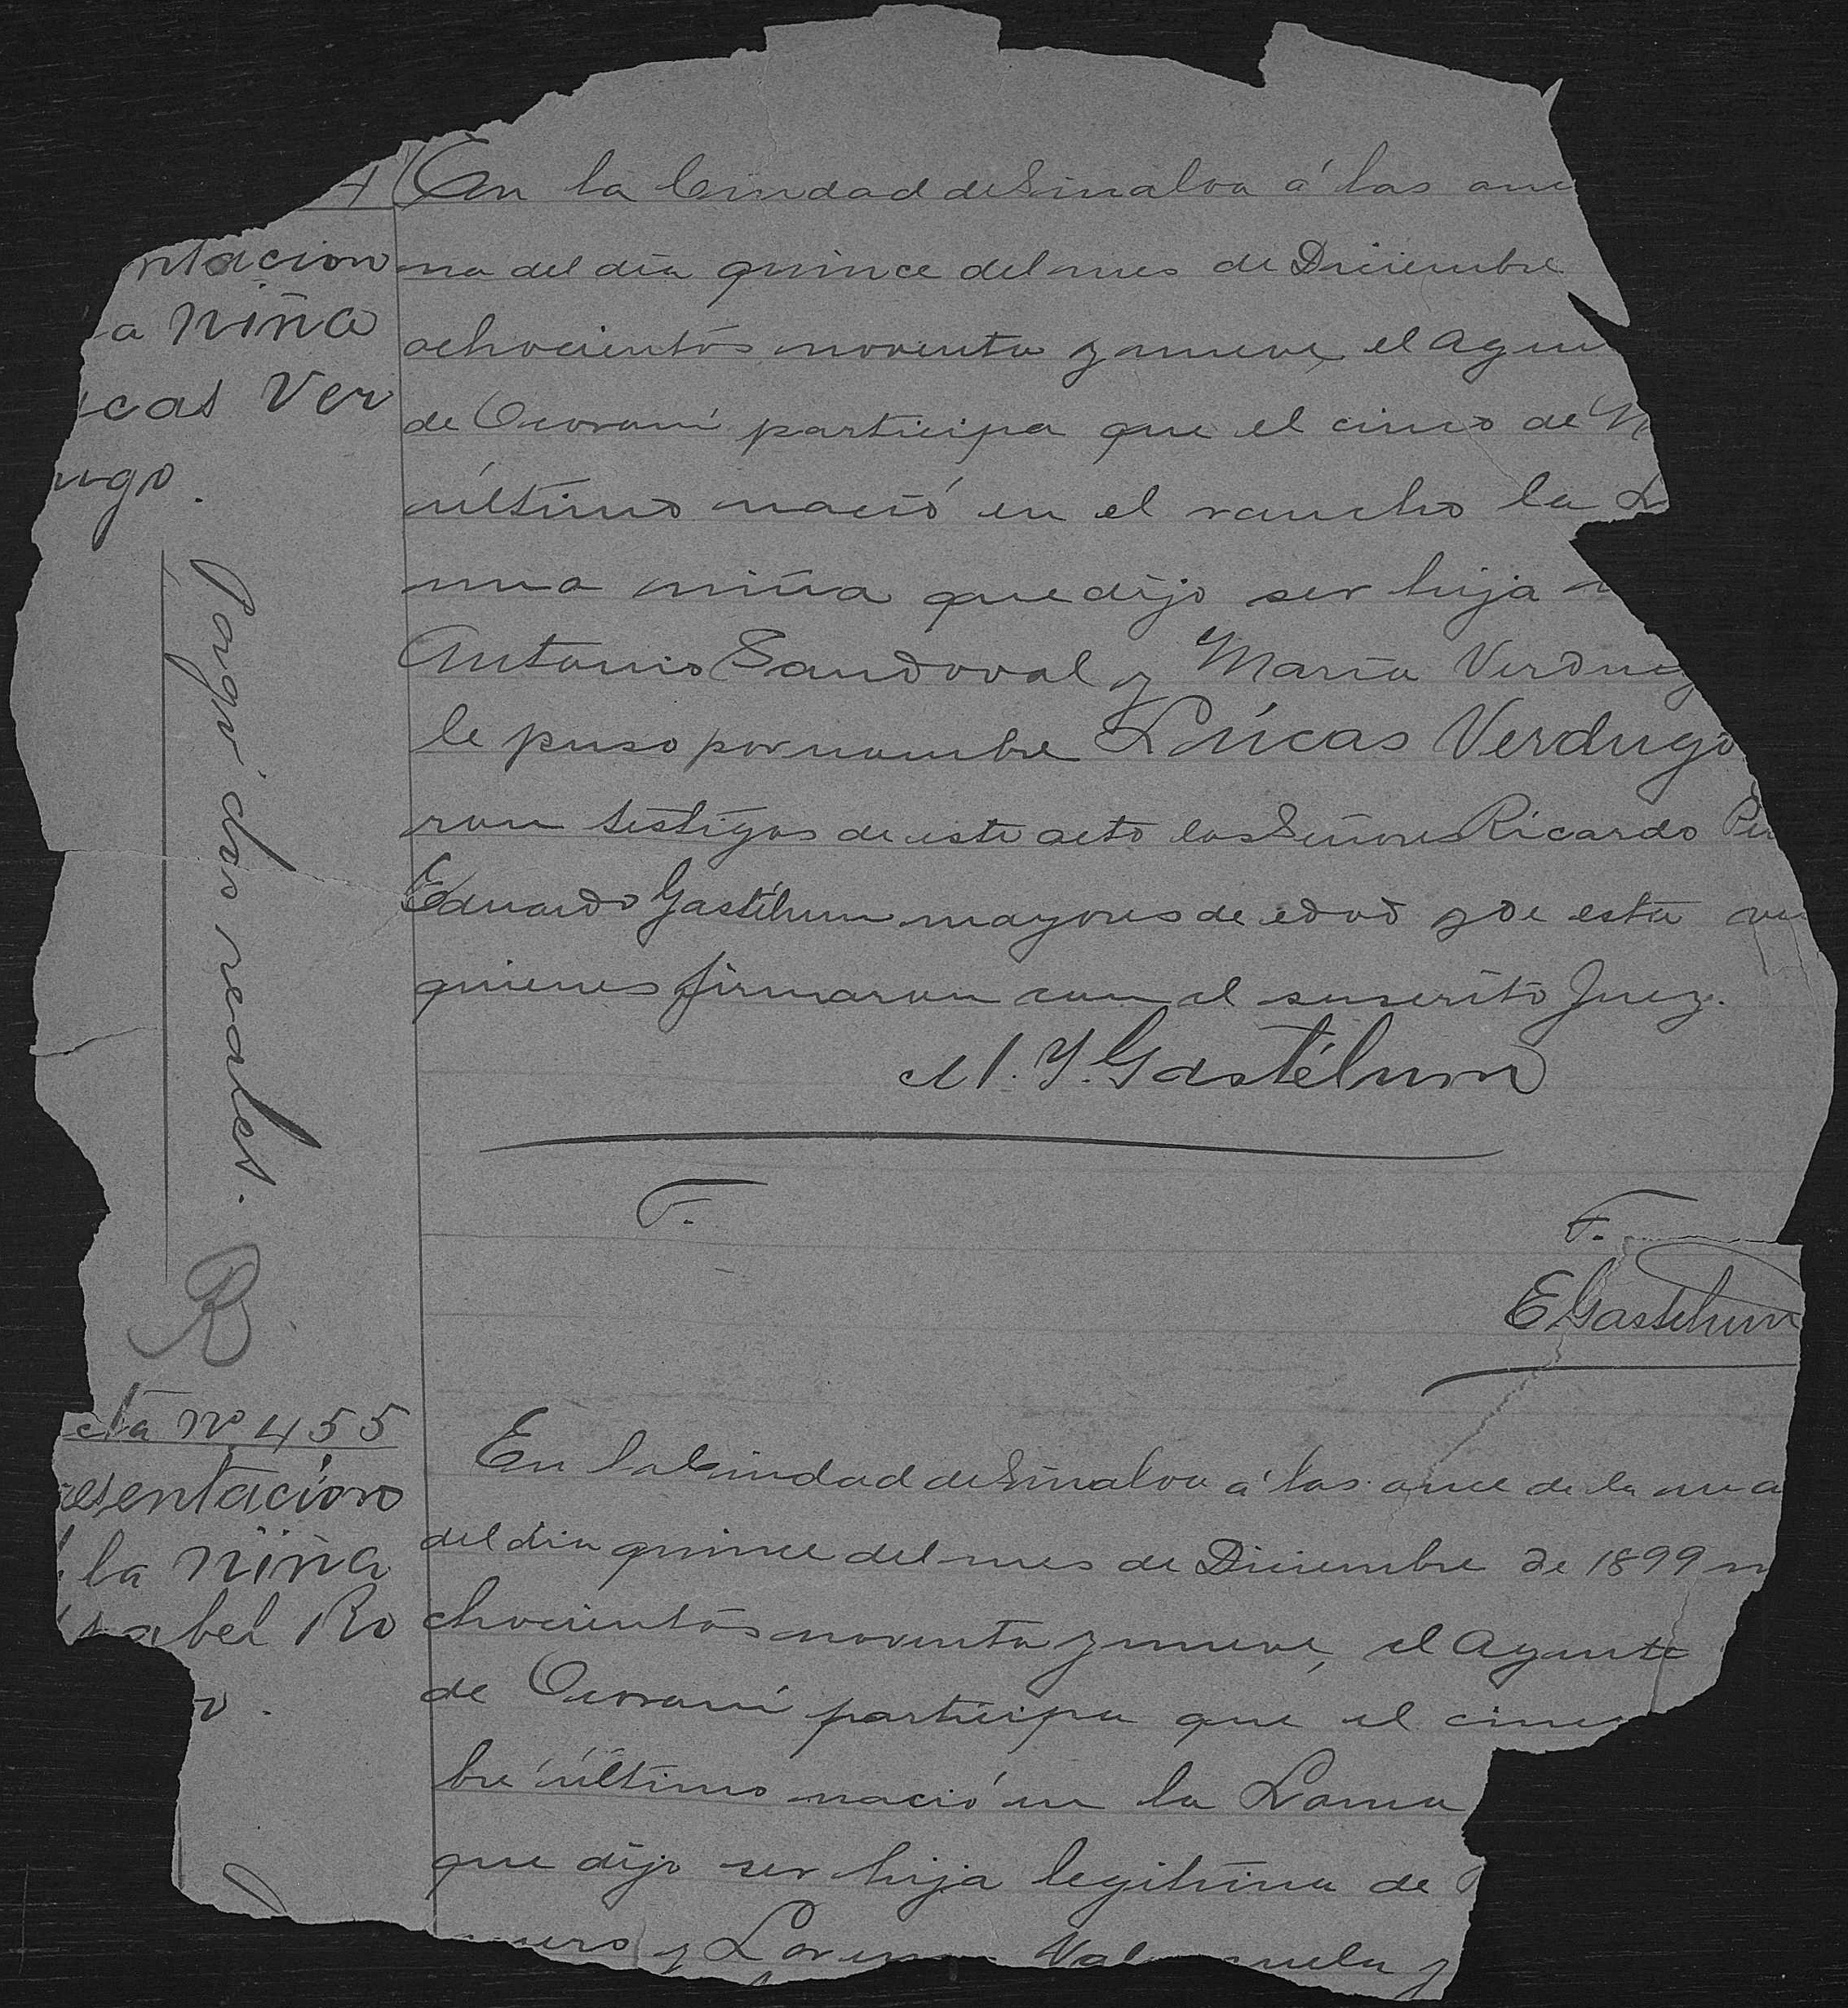 4
ntacion
a niña
cas Ver
ugo.
Pagó dos reales.
En la Ciudad de Sinaloa á las on
na del dia quince del mes de Diciembre
ochocientos noventa y nueve, el Agen
de Ocoroni participa que el cinco de N
último nació en el rancho la L
una niña que dijo ser hija
Antonio Sandoval y María Verdug
le puso por nombre Lúcas Verdugo
ron testigos de este acto los Señores Ricardo
Eduardo Gastélum mayores de edad y de esta ve
quienes firmaron con el suscrito Juez.
M. Y. Gastélum
F.
F.
E Gastelum
cta no 455
esentacion
la niña
sabel Ro
o.
En la Ciudad de Sinaloa á las once de la ma
del dia quince del mes de Diciembre de 1899 m
chocientos noventa y nueve, el Agente
de Ocoroni participa que el cinc
bre último nació en la Loma
que dijo ser hija legitima de
mero y Lorenza Valenzuela y